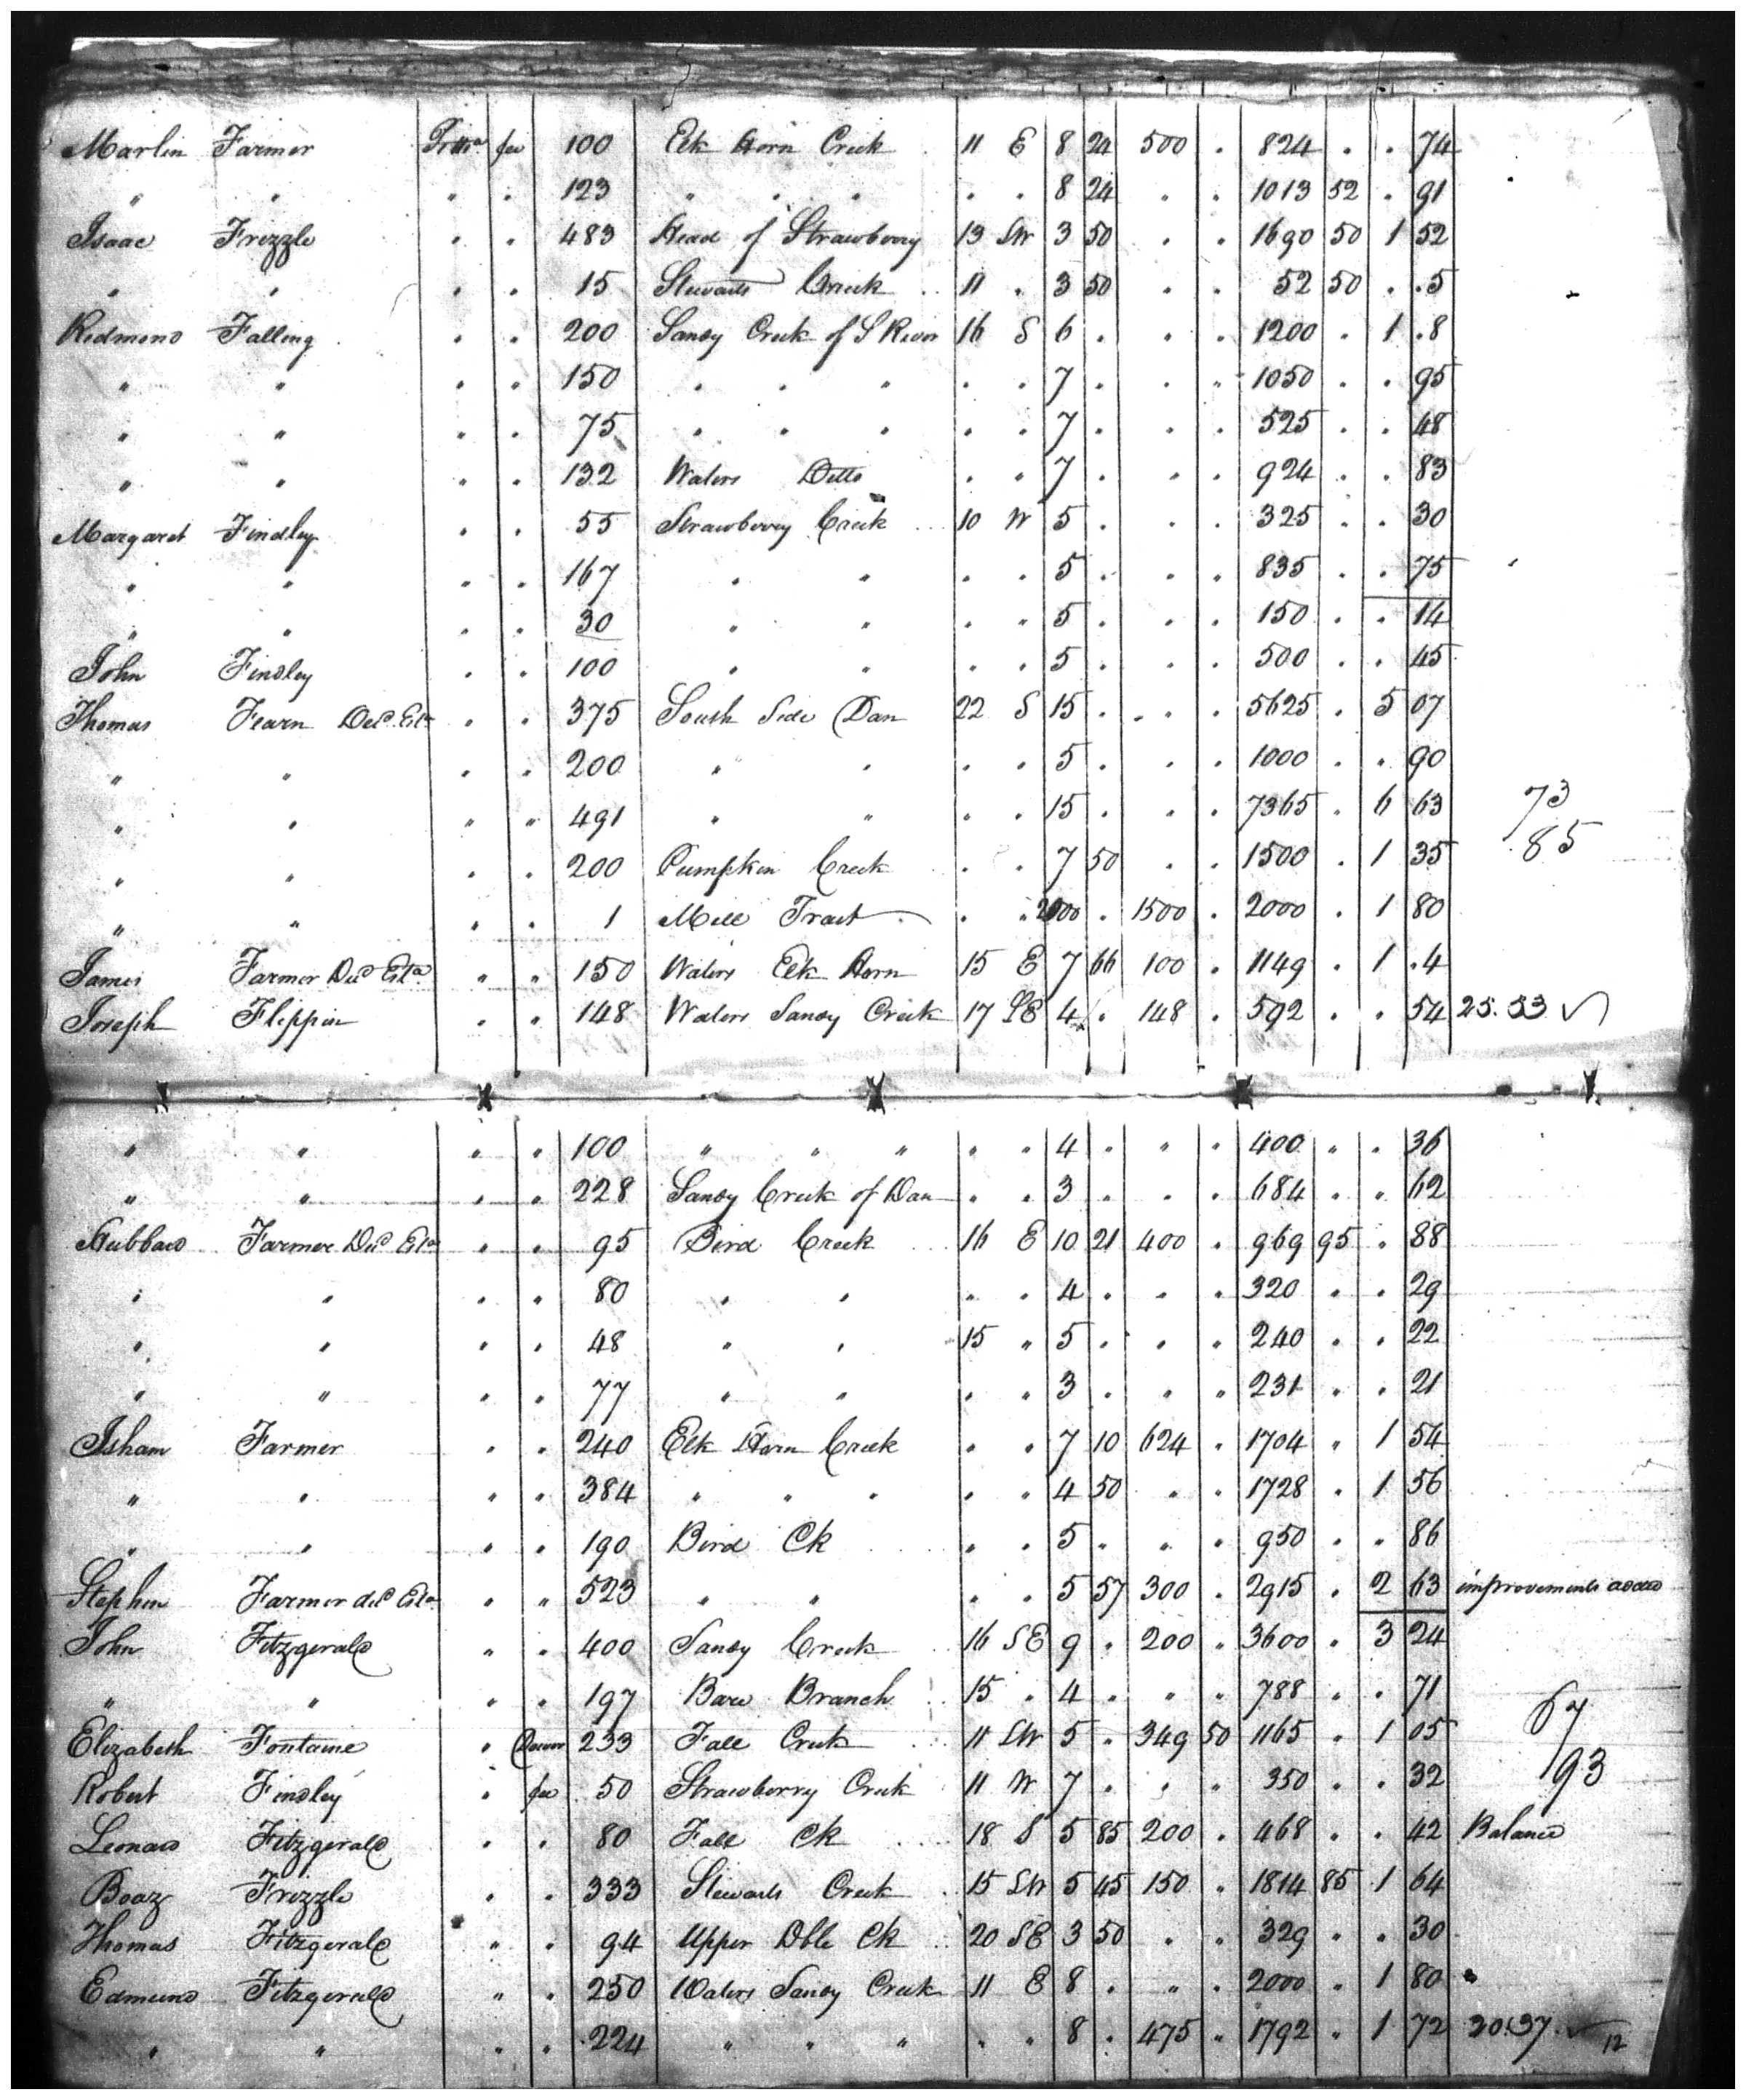 Marlin Farmer Pittsa. fee 100 Elk Horn Creek 11 E 8 24 500 " 824 " " 74
" " " " 123 " " " " " 8 24 " " 1013 52 " 91
Isaac Frizzle " " 483 Head of Strawberry 13 SW 3 50 " " 1690 50 1 52
" " " " 15 Stewarts Creek 11 " 3 50 " " 52 50 " .5
Redmond Falling " " 200 Sandy Creek of S River 16 S 6 " " " 1200 " 1 .8
" " " " 150 " " " " " 7 " " " 1050 " " 95
" " " " 75 " " " " " 7 " " " 525 " " 48
" " " " 132 Waters Ditto " " 7 " " " 924 " " 83
Margaret Findley " " 55 Strawberry Creek 10 W 5 " " " 325 " " 30
" " " " 167 " " " " 5 " " " 835 " " 75
" " " " 30 " " " " 5 " " " 150 " " 14
John Findley " " 100 " " " " 5 " " " 500 " " 45
Thomas Fearn Decd. Esta. " " 375 South Side Dan 22 S 15 " " " 5625 " 5 07
" " " " 200 " " " " 5 " " " 1000 " " 90
" " " " 491 " " " " 15 " " " 7365 " 6 63 73
" " " " 200 Pumpkin Creek " " 7 50 " " 1500 " 1 35 85
" " " " 1 Mill Tract " " 2000 " 1500 " 2000 " 1 80
James Farmer Decd Esta. " " 150 Waters Elk Horn 15 E 7 66 100 " 1149 " 1 .4
Joseph Flippin " " 148 Waters Sandy Creek 17 SE 4 " 148 " 592 " " 54 25.53
" " " " 100 " " " " " 4 " " " 400 " " 36
" " " " 228 Sandy Creek of Dan " " 3 " " " 684 " " 62
Hubbard Farmer Decd Esta " " 95 Bird Creek 16 E 10 21 400 " 969 95 " 88
" " " " 80 " " " " 4 " " " 320 " " 29
" " " " 48 " " 15 " 5 " " " 240 " " 22
" " " " 77 " " " " 3 " " " 231 " " 21
Isham Farmer " " 240 Elk Horn Creek " " 7 10 624 " 1704 " 1 54
" " " " 384 " " " " " 4 50 " " 1728 " 1 56
" " " " 190 Bird Ck " " 5 " " " 950 " " 86
Stephen Farmer decd Esta " " 523 " " " " 5 57 300 " 2915 " 2 63 improvements added
John Fitzgerald " " 400 Sandy Creek 16 SE 9 " 200 " 3600 " 3 24
" " " " 197 Bare Branch 15 " 4 " " " 788 " " 71 67
Elizabeth Fontaine " Dower 233 Fall Creek 11 SW 5 " 349 50 1165 " 1 05
Robert Findley " fee 50 Strawberry Creek 11 W 7 " " " 350 " " 32 93
Leonard Fitzgerald " " 80 Fall Ck 18 S 5 85 200 " 468 " " 42 Balance
Boaz Frizzle " " 333 Stewarts Creek 15 SW 5 45 150 " 1814 85 1 64
Thomas Fitzgerald " " 94 Upper Dble Ck 20 SE 3 50 " " 329 " " 30
Edmund Fitzgerald " " 250 Waters Sandy Creek 11 E 8 " " " 2000 " 1 80
" " " " 224 " " " " " 8 " 475 " 1792 " 1 72 20.37 12